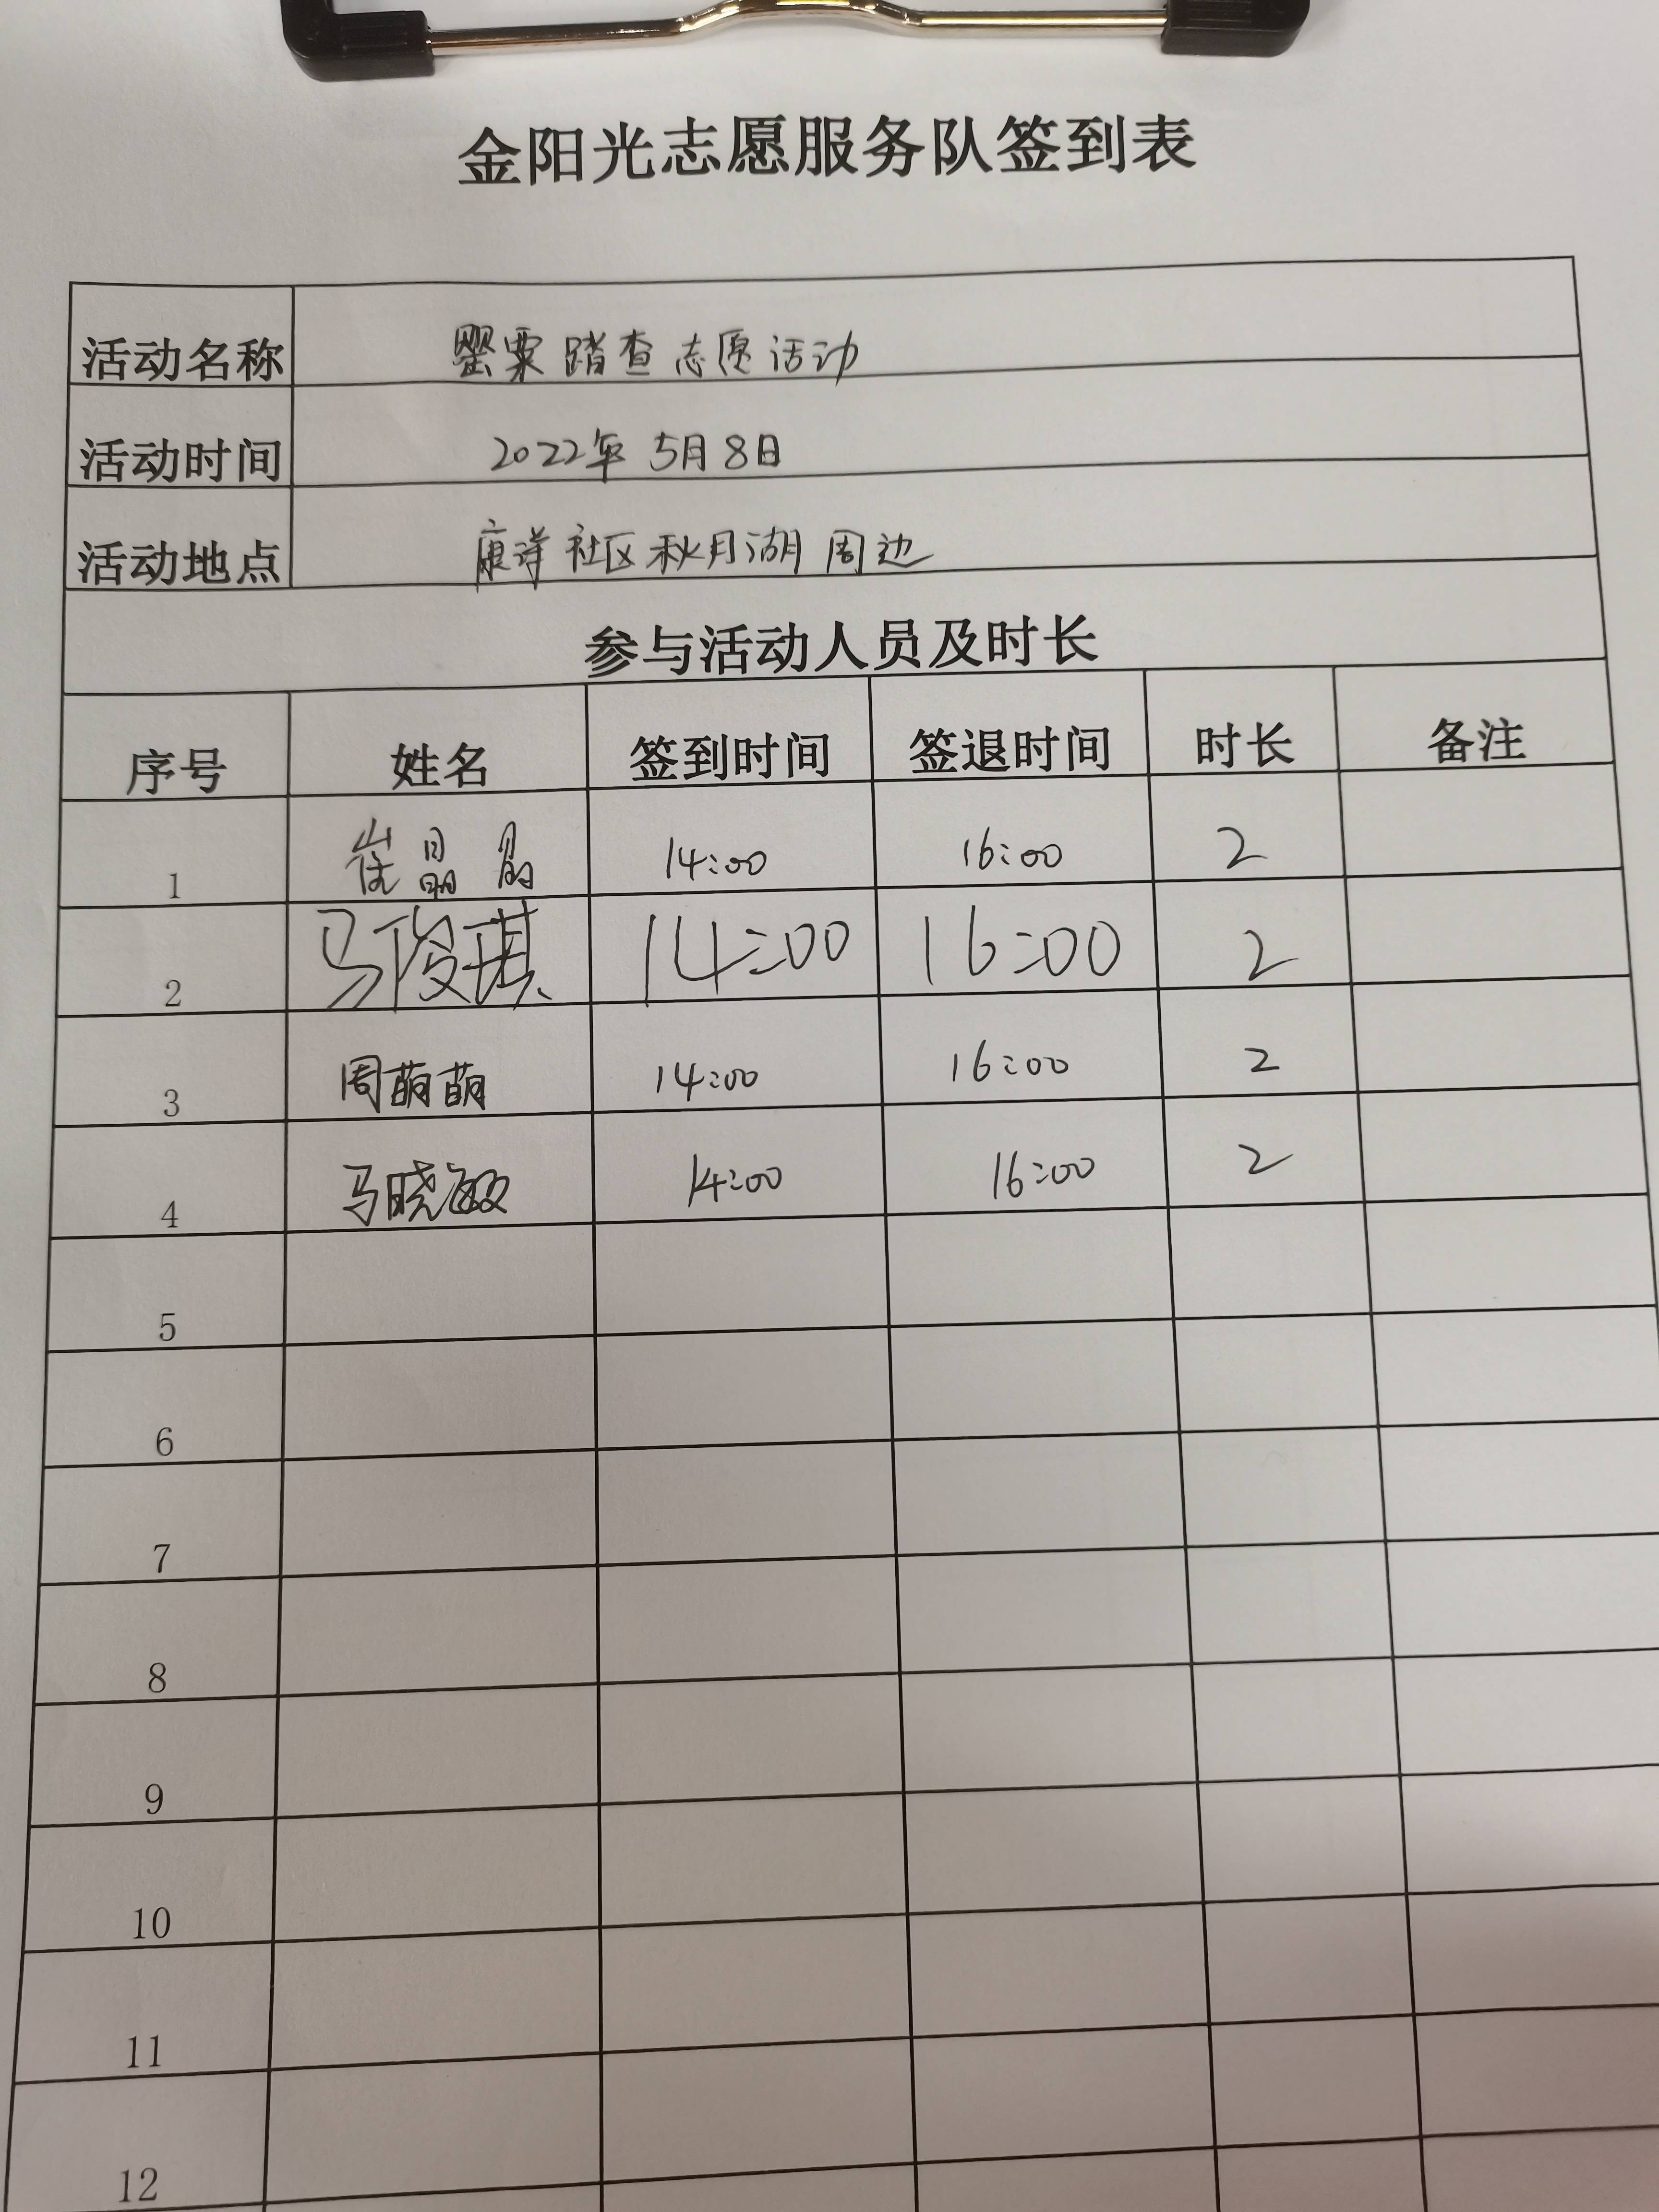 金阳光志愿服务队签到表
活动名称 罂粟踏查志愿活动
活动时间 2022年5月8日
活动地点 康洋社区秋月湖周边
参与活动人员及时长
序号 姓名 签到时间 签退时间 时长 备注
1 崔晶晶 14:00 16:00 2
2 马俊琪 14:00 16:00 2
3 周萌萌 14:00 16:00 2
4 马晓敏 14:00 16:00 2
5
6
7
8
9
10
11
12